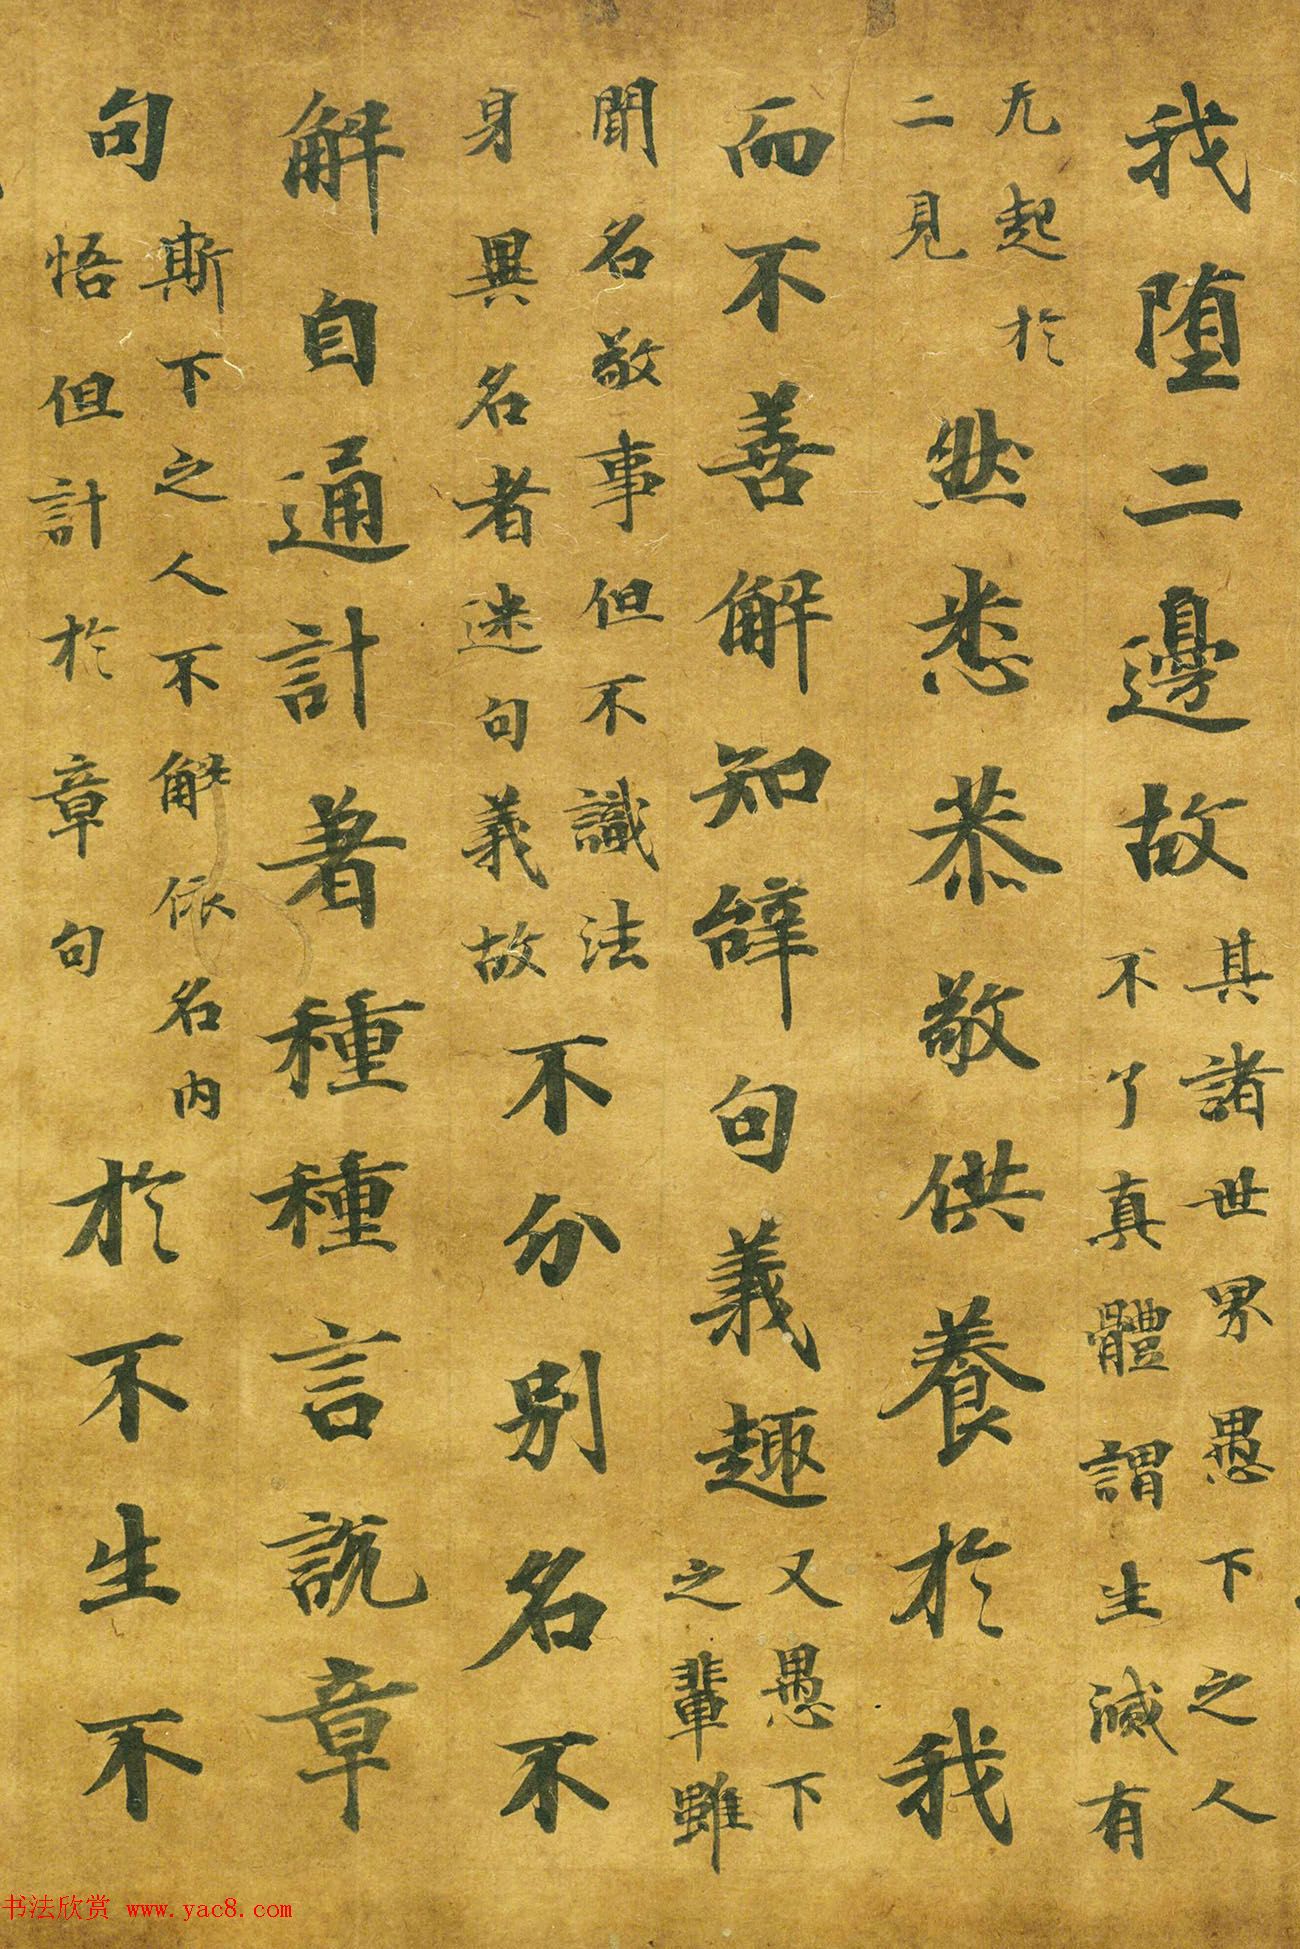 我堕二邊故其諸世界愚下之人
不了真體謂生滅有
无起於
二見
然悉恭敬供養於我
而不善解知辝句義趣又愚下
之輩雖
聞名敬事但不識法
身異名者迷句義故
不分別名不
解自通計著種種言說章
句斯下之人不解依名内
悟但計於章句
於不生不
书法欣赏 www.yac8.com